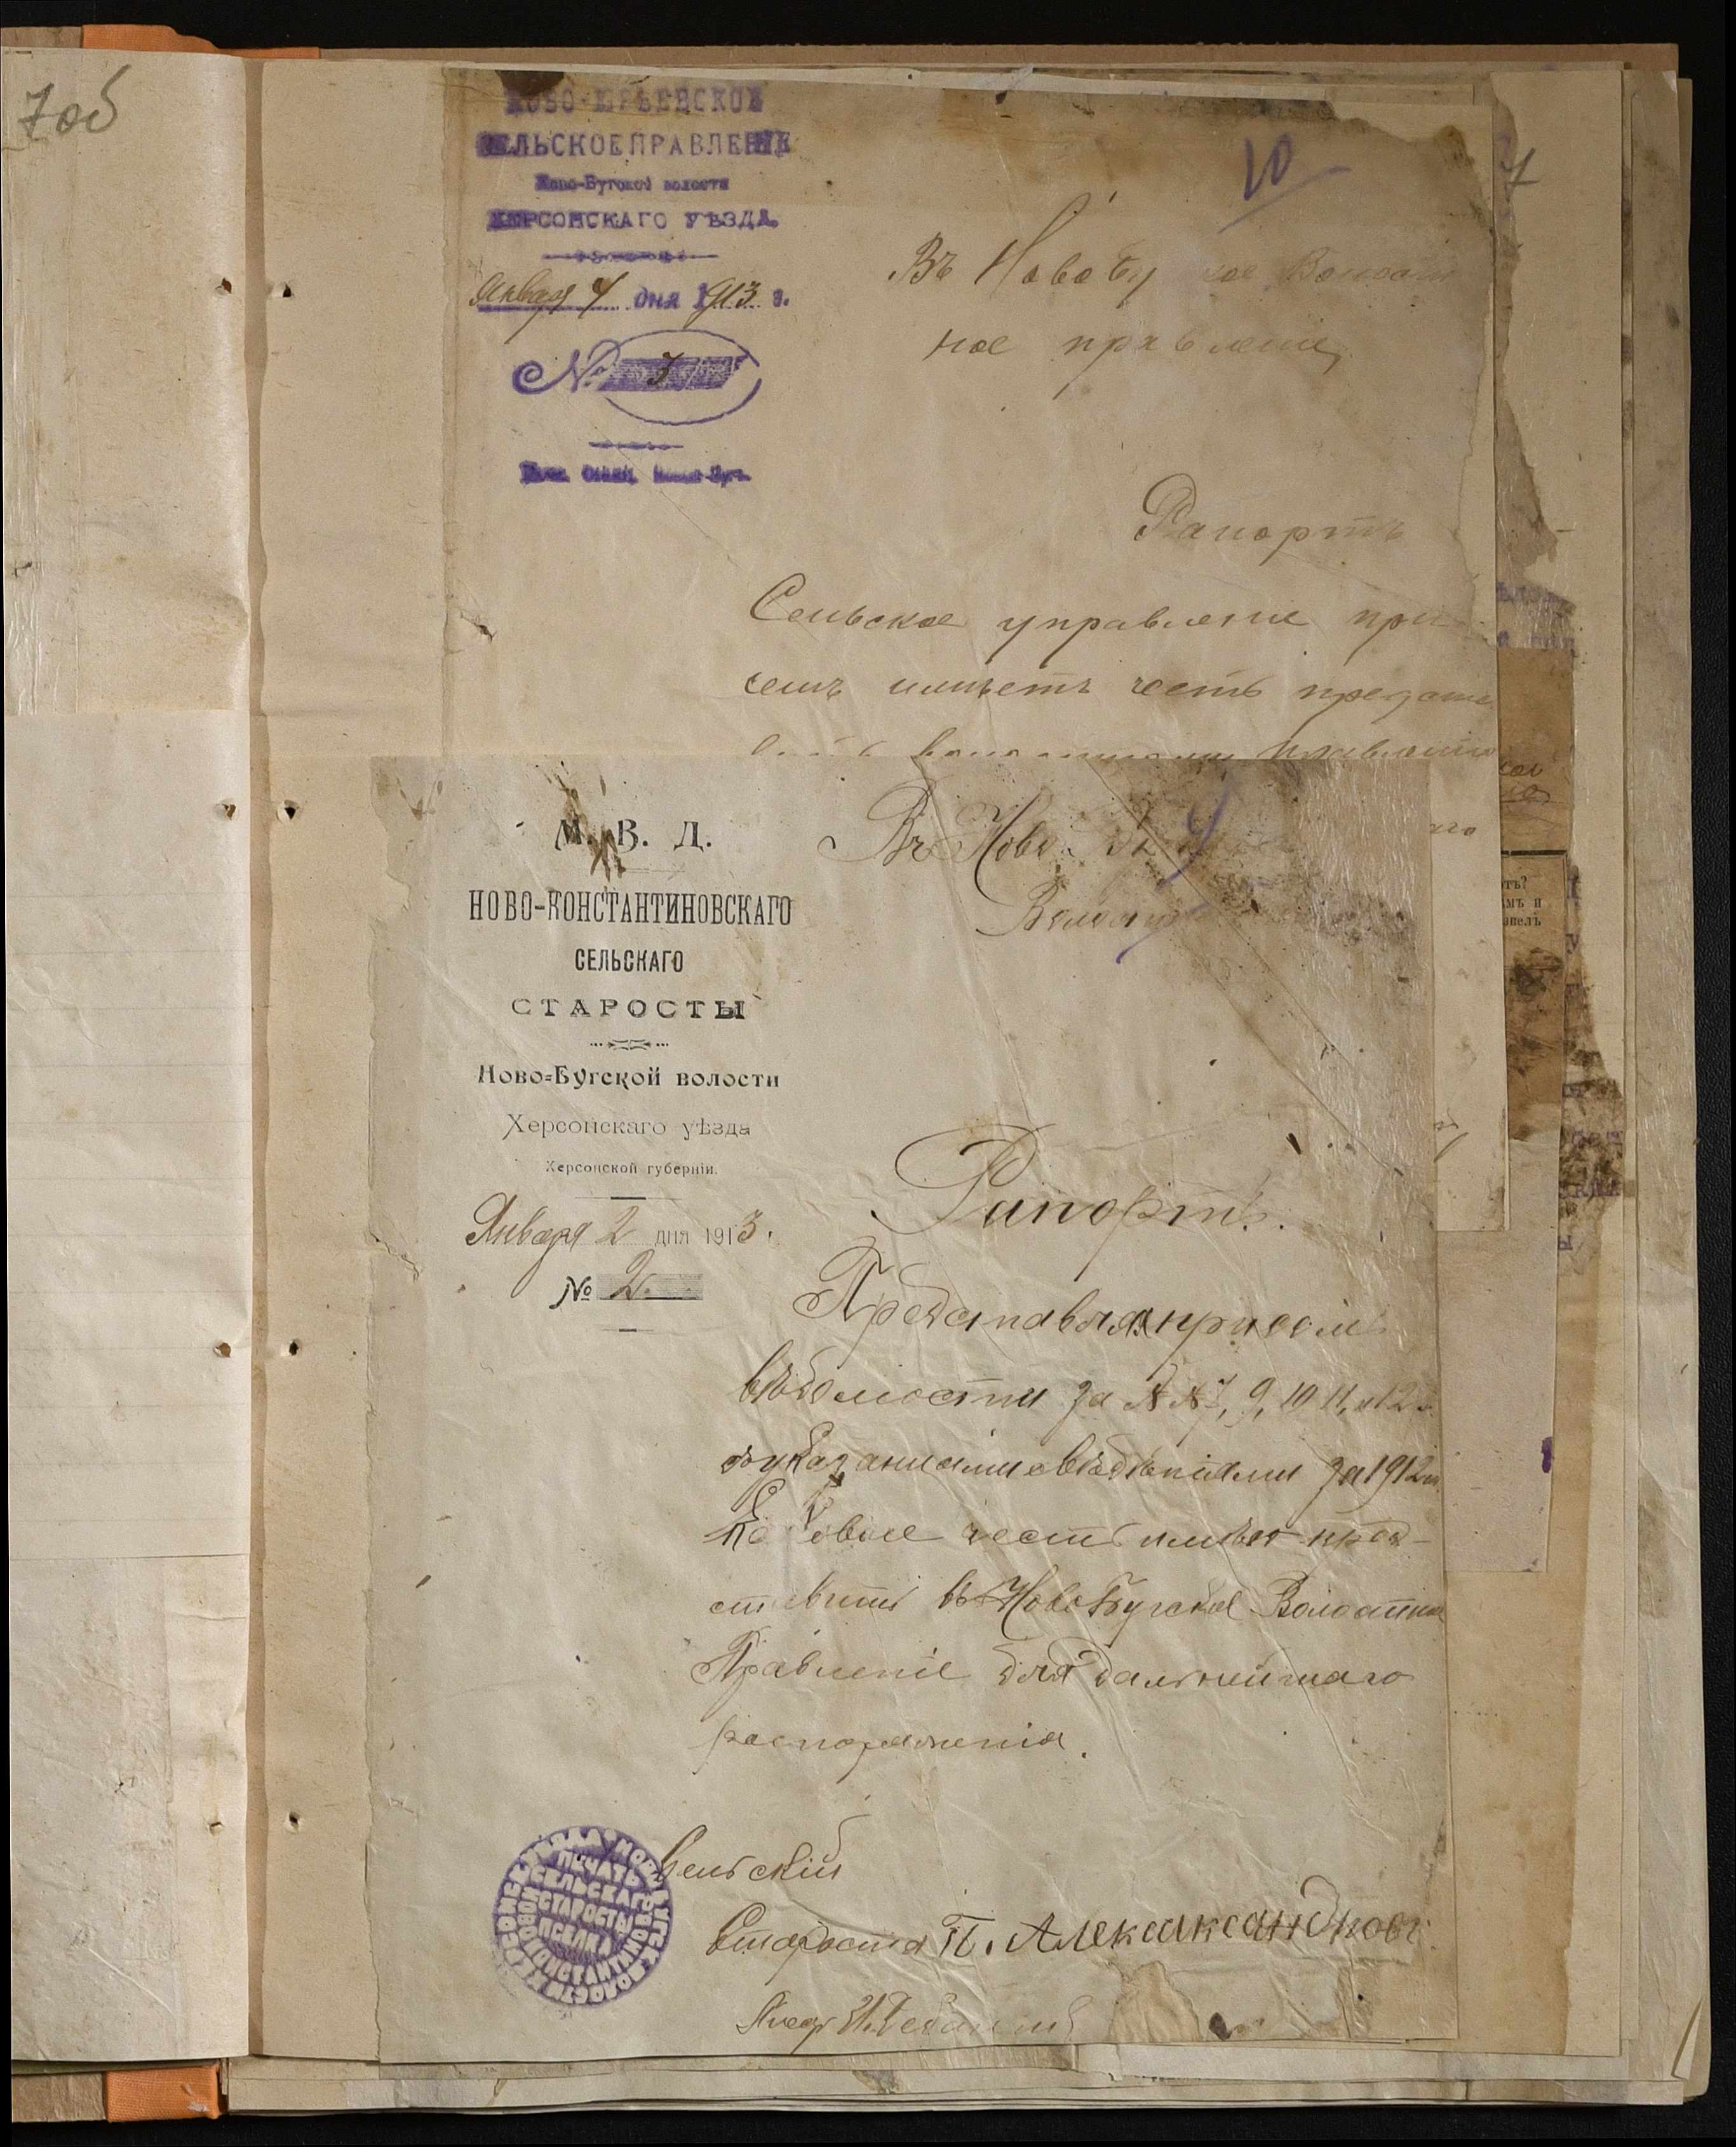 7об
НОВО-ЮРЬЕВСКОЕ
СЕЛЬСКОЕ ПРАВЛЕНІЕ
Ново-Бугской волости
ХЕРСОНСКАГО УѢЗДА
Января 4 дня 1913 г.
№ 3
10
7
Въ Ново Бу
ное правленіе
Рапортъ
Сельское управленіе при
семъ имѣетъ честь предста
правленію
М. В. Д.
НОВО-КОНСТАНТИНОВСКАГО
СЕЛЬСКАГО
СТАРОСТЫ
Ново-Бугской волости
Херсонскаго уѣзда
Херсонской губерніи.
Января 2 дня 1913 г.
№ 2.
Въ Ново
9
Рапортъ.
Представляя при семъ
вѣдомости за №№ 7, 9, 10 11, и 12
съ указаніями свѣдѣніями за 1912 г.
честь имѣю пред-
ставить въ Ново Бугское Волостное
Правленіе для дальнейшаго
распоряженія.
Сельскій
Староста П. Алексаксандровъ
ПЕЧАТЬ
СЕЛЬСКАГО
СТАРОСТЫ